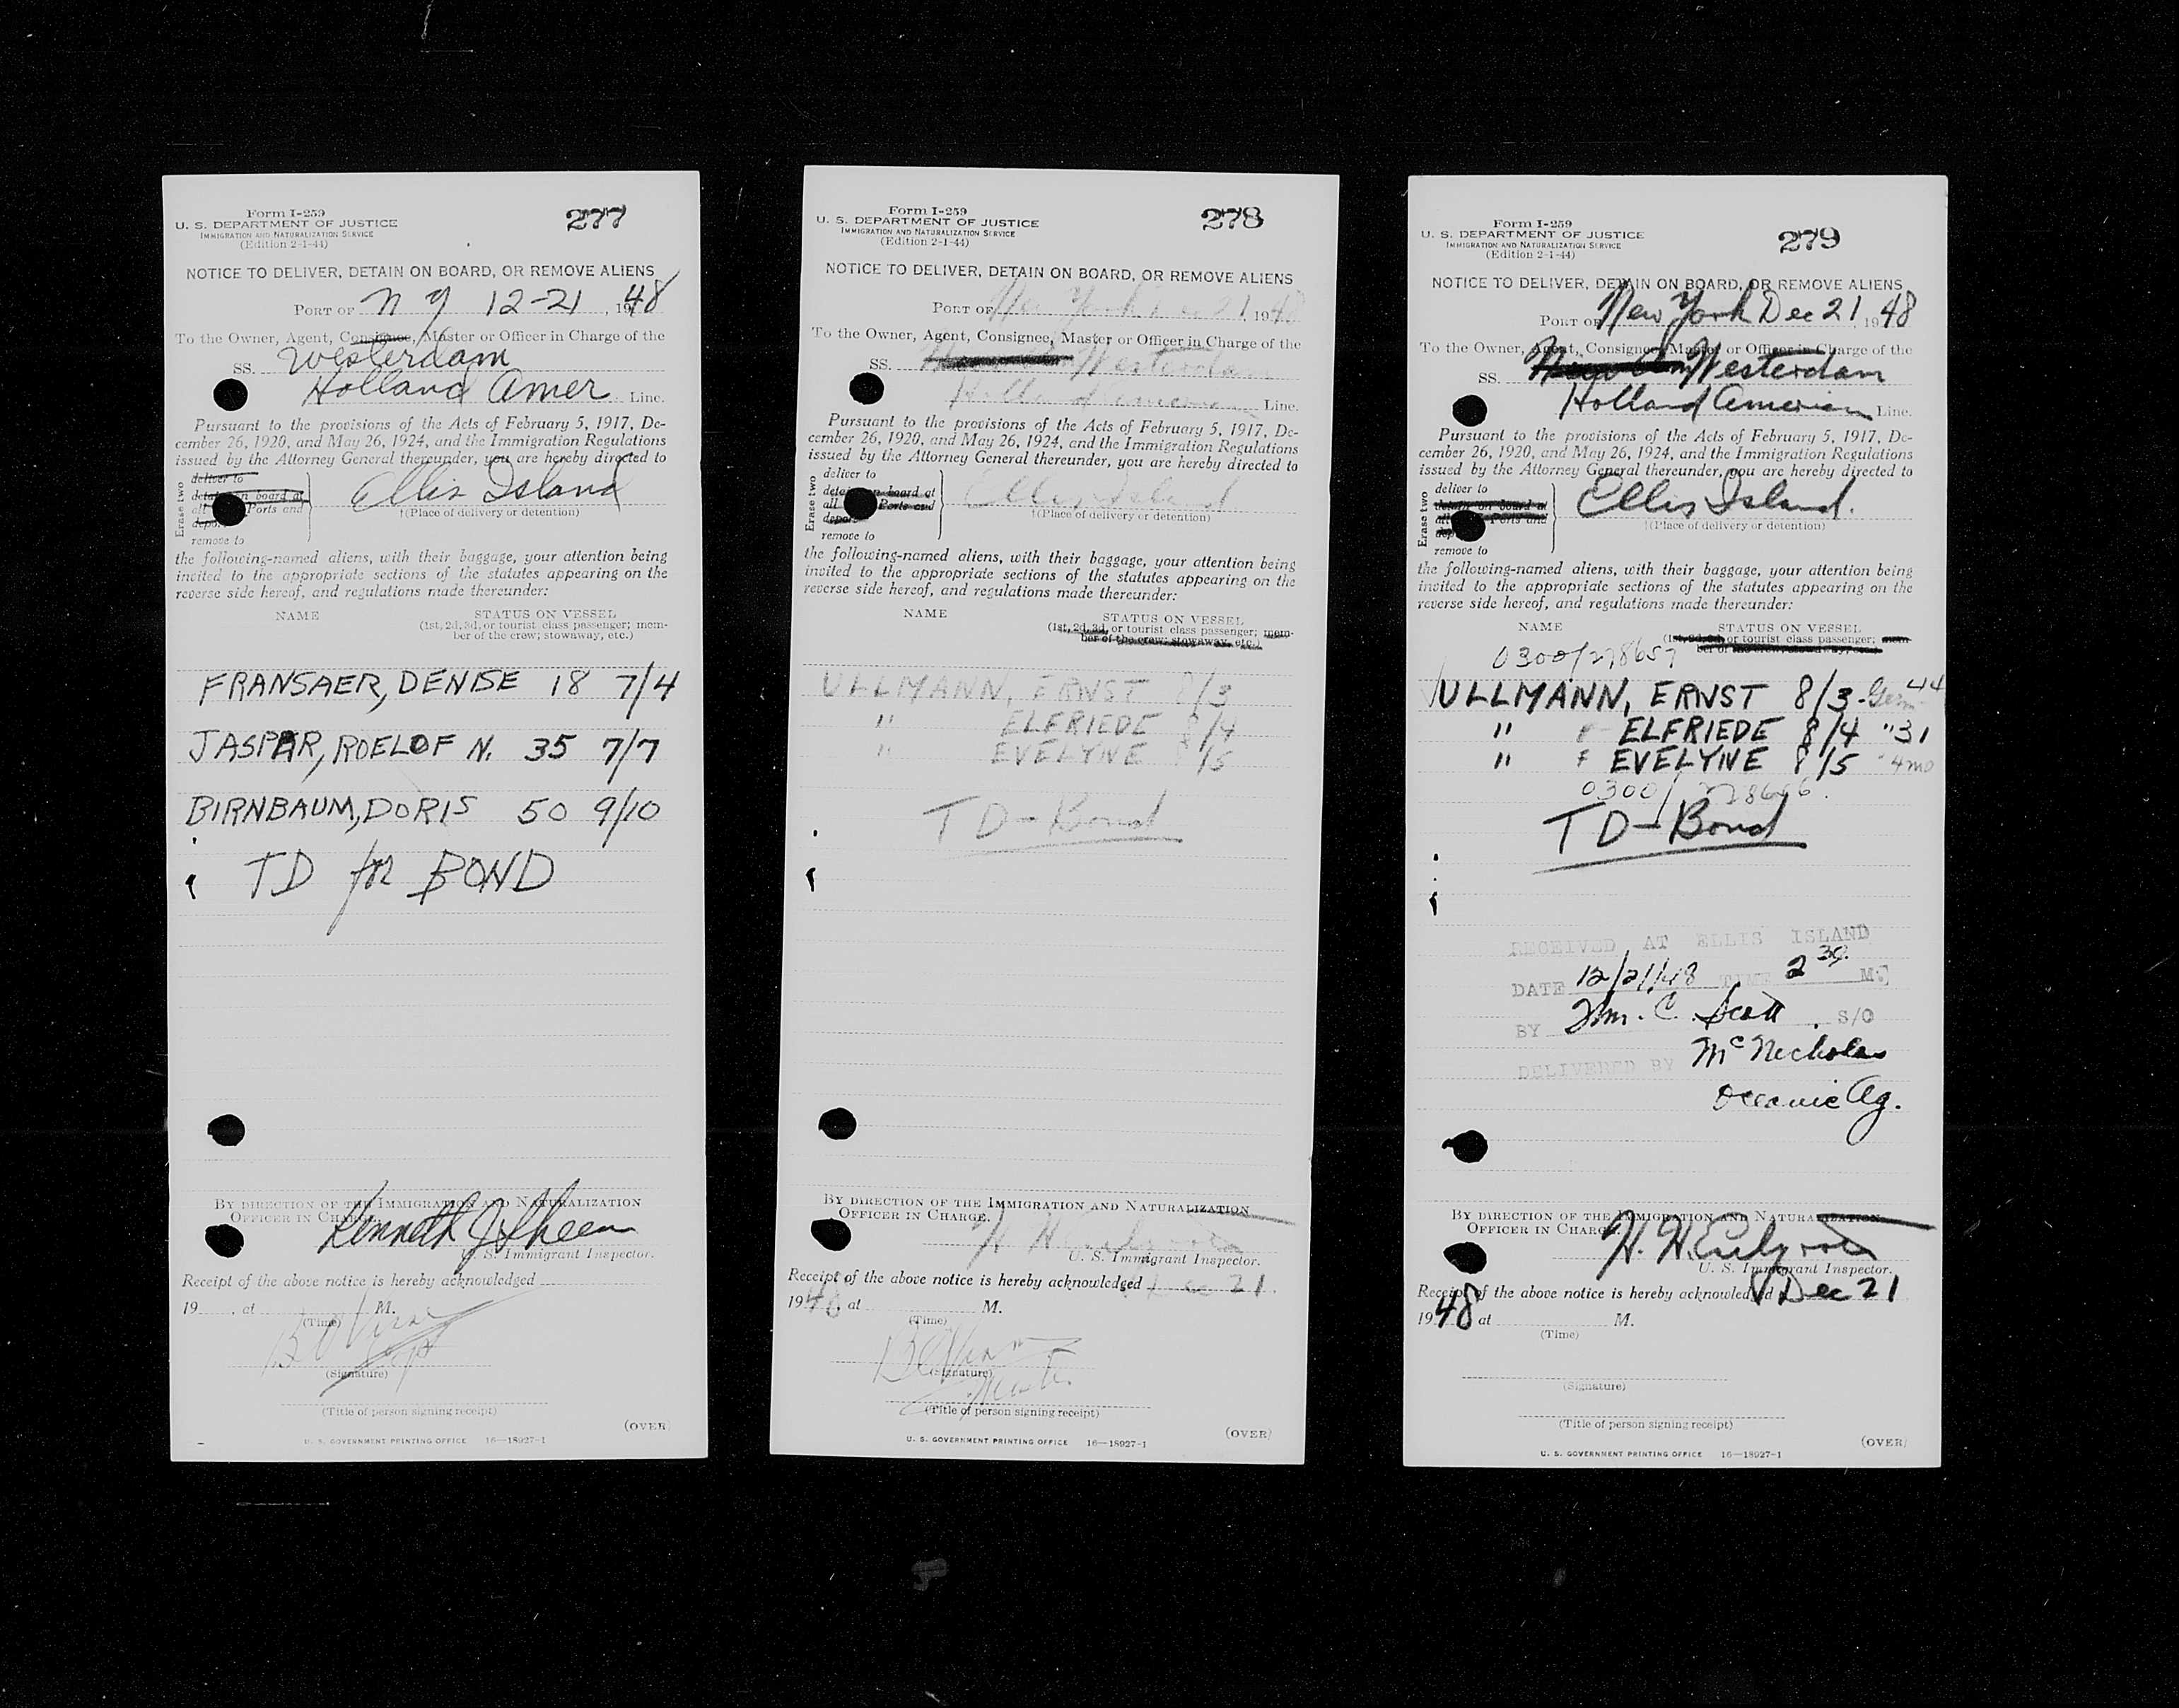 Form I-259
U. S. DEPARTMENT OF JUSTICE
IMMIGRATION AND NATURALIZATION SERVICE
(Edition 2-1-44)
277
NOTICE TO DELIVER, DETAIN ON BOARD, OR REMOVE ALIENS
PORT OF N Y 12-21, 1948
To the Owner, Agent, Consignee, Master or Officer in Charge of the
SS. Westerdam
Holland Amer Line.
Pursuant to the provisions of the Acts of February 5, 1917, De-
cember 26, 1920, and May 26, 1924, and the Immigration Regulations
issued by the Attorney General thereunder, you are hereby directed to
Erase two
deliver to
detain on board at
all Ports and
depor
remove to
Ellis Island
†(Place of delivery or detention)
the following-named aliens, with their baggage, your attention being
invited to the appropriate sections of the statutes appearing on the
reverse side hereof, and regulations made thereunder:
NAME STATUS ON VESSEL
(1st, 2d, 3d, or tourist class passenger; mem-
ber of the crew; stowaway, etc.)
FRANSAER, DENISE 18 7/4
JASPAR, ROELOF N. 35 7/7
BIRNBAUM, DORIS 50 9/10
TD for BOND
BY DIRECTION OF THE IMMIGRATION AND NATURALIZATION
OFFICER IN CHARGE.
Kenneth J Sheen
U. S. Immigrant Inspector.
Receipt of the above notice is hereby acknowledged
19 , at M.
(Time)
(Signature)
(Title of person signing receipt)
(OVER)
U. S. GOVERNMENT PRINTING OFFICE 16—18927-1
Form I-259
U. S. DEPARTMENT OF JUSTICE
IMMIGRATION AND NATURALIZATION SERVICE
(Edition 2-1-44)
278
NOTICE TO DELIVER, DETAIN ON BOARD, OR REMOVE ALIENS
PORT OF New York Dec 21, 1948
To the Owner, Agent, Consignee, Master or Officer in Charge of the
SS. Westerdam
Holland American Line.
Pursuant to the provisions of the Acts of February 5, 1917, De-
cember 26, 1920, and May 26, 1924, and the Immigration Regulations
issued by the Attorney General thereunder, you are hereby directed to
Erase two
deliver to
detain on board at
all Ports and
depor
remove to
Ellis Island
†(Place of delivery or detention)
the following-named aliens, with their baggage, your attention being
invited to the appropriate sections of the statutes appearing on the
reverse side hereof, and regulations made thereunder:
NAME STATUS ON VESSEL
(1st, 2d, 3d, or tourist class passenger; mem-
ber of the crew; stowaway, etc.)
ULLMANN, ERNST 8/3
" ELFRIEDE 8/4
" EVELYNE 8/5
TD-Bond
BY DIRECTION OF THE IMMIGRATION AND NATURALIZATION
OFFICER IN CHARGE.
U. S. Immigrant Inspector.
Receipt of the above notice is hereby acknowledged Dec 21
1948, at M.
(Time)
(Signature)
(Title of person signing receipt)
(OVER)
U. S. GOVERNMENT PRINTING OFFICE 16—18927-1
Form I-259
U. S. DEPARTMENT OF JUSTICE
IMMIGRATION AND NATURALIZATION SERVICE
(Edition 2-1-44)
279
NOTICE TO DELIVER, DETAIN ON BOARD, OR REMOVE ALIENS
PORT OF New York Dec 21 1948
To the Owner, Agent, Consignee, Master or Officer in Charge of the
SS. Westerdam
Holland American Line.
Pursuant to the provisions of the Acts of February 5, 1917, De-
cember 26, 1920, and May 26, 1924, and the Immigration Regulations
issued by the Attorney General thereunder, you are hereby directed to
Erase two
deliver to
detain on board at
all Ports and
dep
remove to
Ellis Island.
†(Place of delivery or detention)
the following-named aliens, with their baggage, your attention being
invited to the appropriate sections of the statutes appearing on the
reverse side hereof, and regulations made thereunder:
NAME STATUS ON VESSEL
(1st, 2d, 3d, or tourist class passenger; mem-
ber of the crew; stowaway, etc.)
0300/278657
ULLMANN, ERNST 8/3 - Germ 44
" ELFRIEDE 8/4 " 31
" F EVELYNE 8/5 " 4mo
TD-Bond
RECEIVED AT ELLIS ISLAND
DATE 12/21/48 TIME 2 30 M.
BY Wm. C. Scott S/O
DELIVERED BY McNicholas
Oceanic Ag.
BY DIRECTION OF THE IMMIGRATION AND NATURALIZATION
OFFICER IN CHARGE.
U. S. Immigrant Inspector.
Receipt of the above notice is hereby acknowledged Dec 21
1948 at M.
(Time)
(Signature)
(Title of person signing receipt)
(OVER)
U. S. GOVERNMENT PRINTING OFFICE 16—18927-1